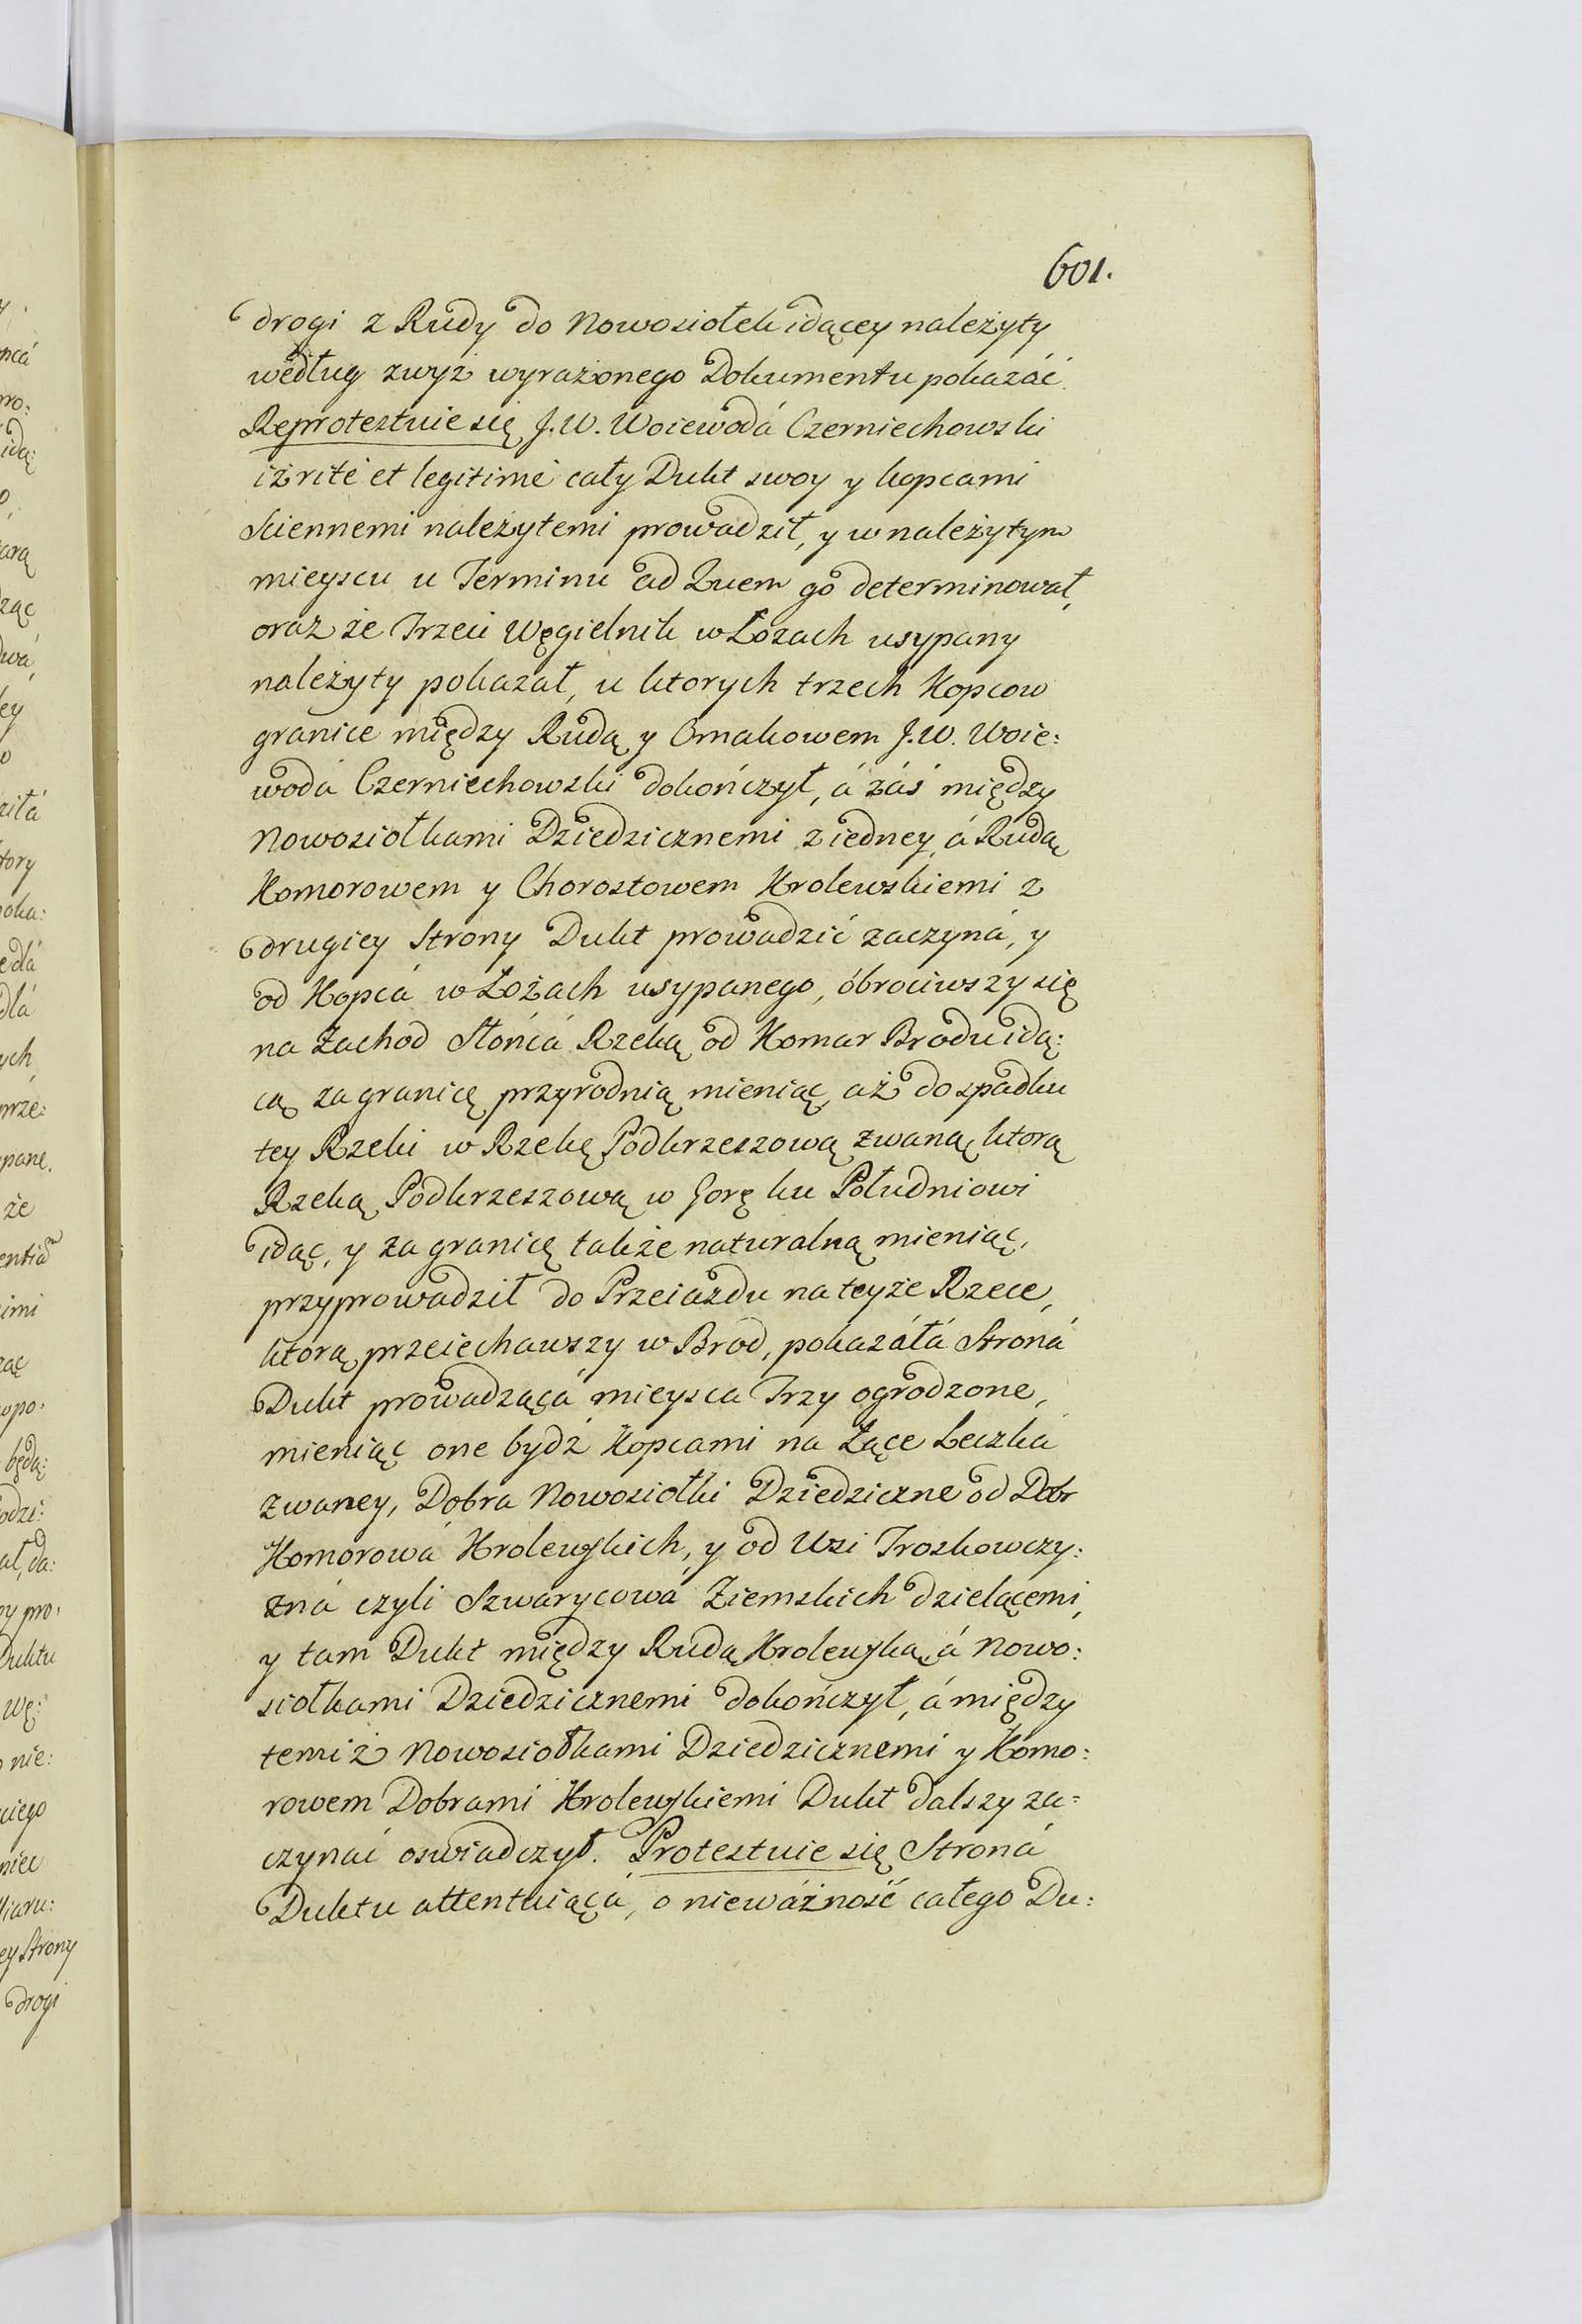 601.
drogi z Rudy do Nowosiołek idącey należyty
według zwyż wyrażonego Dokumentu pokazáć.
Reprotestuie się J.W. Woiewodá Czerniechowski
iż rité et legitimé cały Dukt swoy y kopcami
Sciennemi należytemi prowadził, y w należytym
mieyscu u Terminu ad Quem go determinował,
oraz że Trzeci Węgielnik w Łozach usypany
należyty pokazał, u ktorych trzech Kopcow
granice między Rudą y Omakowem J.W. Woie:
wodá Czerniechowski dokończył, á záś między
Nowosiołkami Dziedzicznemi z iedney, á Rudą
Komorowem y Chorostowem Krolewskiemi z
drugiey Strony Dukt prowadzić zaczyná, y
od Kopcá w Łozach usypanego, óbrociwszy się
na Zachod Słońcá Rzeką od Komar Brodu idą:
cą za granicę przyrodnią mieniąc, aż do spadku
tey Rzeki w Rzekę Podkrzeszową zwaną, ktorą
Rzeką Podkrzeszową w Gorę ku Południowi
idąc, y za granicę także naturalną mieniąc,
przyprowadził do Przeiazdu na teyże Rzece,
ktorą przeiechawszy w Brod, pokazáłá Stroná
Dukt prowadząca mieysca Trzy ogrodzone,
mieniąc one bydź Kopcami na Łące Leczka
zwaney, Dobra Nowosiołki Dziedziczne od Dobr
Komorowá Krolewskich, y od Wsi Troskowczy:
zná czyli Szwarycowá Ziemskich dzielącemi,
y tam Dukt między Rudą Krolewską, á Nowo:
siołkami Dziedzicznemi dokończył, á między
temiż Nowosiołkami Dziedzicznemi y Komo:
rowem Dobrami Krolewskiemi Dukt dalszy za:
czynać oswiadczył. Protestuie się Stroná
Duktu attentuiąca, o nieważność całego Du: